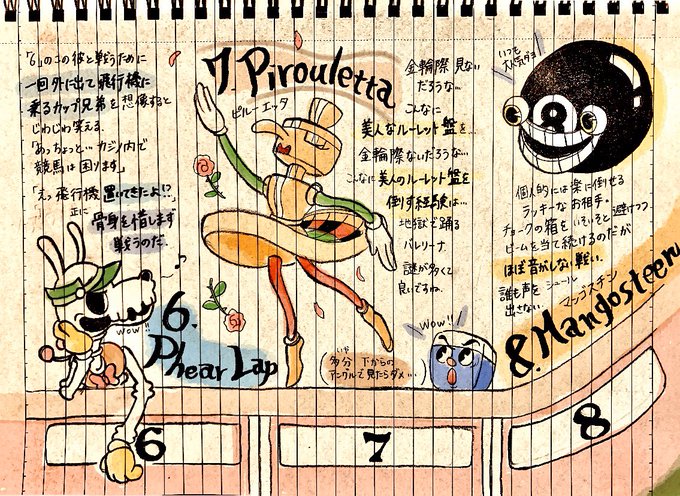 「6」のこの彼と戦うために
一回外に出て飛行機に
乗るカップ兄弟を想像すると
じわじわ笑える.
「あっちょっと… カジノ内で
競馬は困ります」
「えっ飛行機 置いてきたよ!?」
正に
骨身を惜しまず
戦うのだ.
wow!!
6.
Phear Lap
7 Pirouletta
ピルーエッタ
金輪際 見ない
だろうな…
こんなに
美人なルーレット盤を…
金輪際ないだろうな…
こんなに美人のルーレット盤を
倒す経験は…
地獄で踊る
バレリーナ
謎が多くて
良いですね.
多分 下からの
アングルで見たらダメ…
wow!!
いつも
人気ダヨ
8
個人的には楽に倒せる
ラッキーなお相手.
チョークの箱をいそいそと避けつつ
ビームを当て続けるのだが
ほぼ音がしない戦い.
誰も声を シュール
出さない.
マンゴスチン
8. Mangosteen
6
7
8